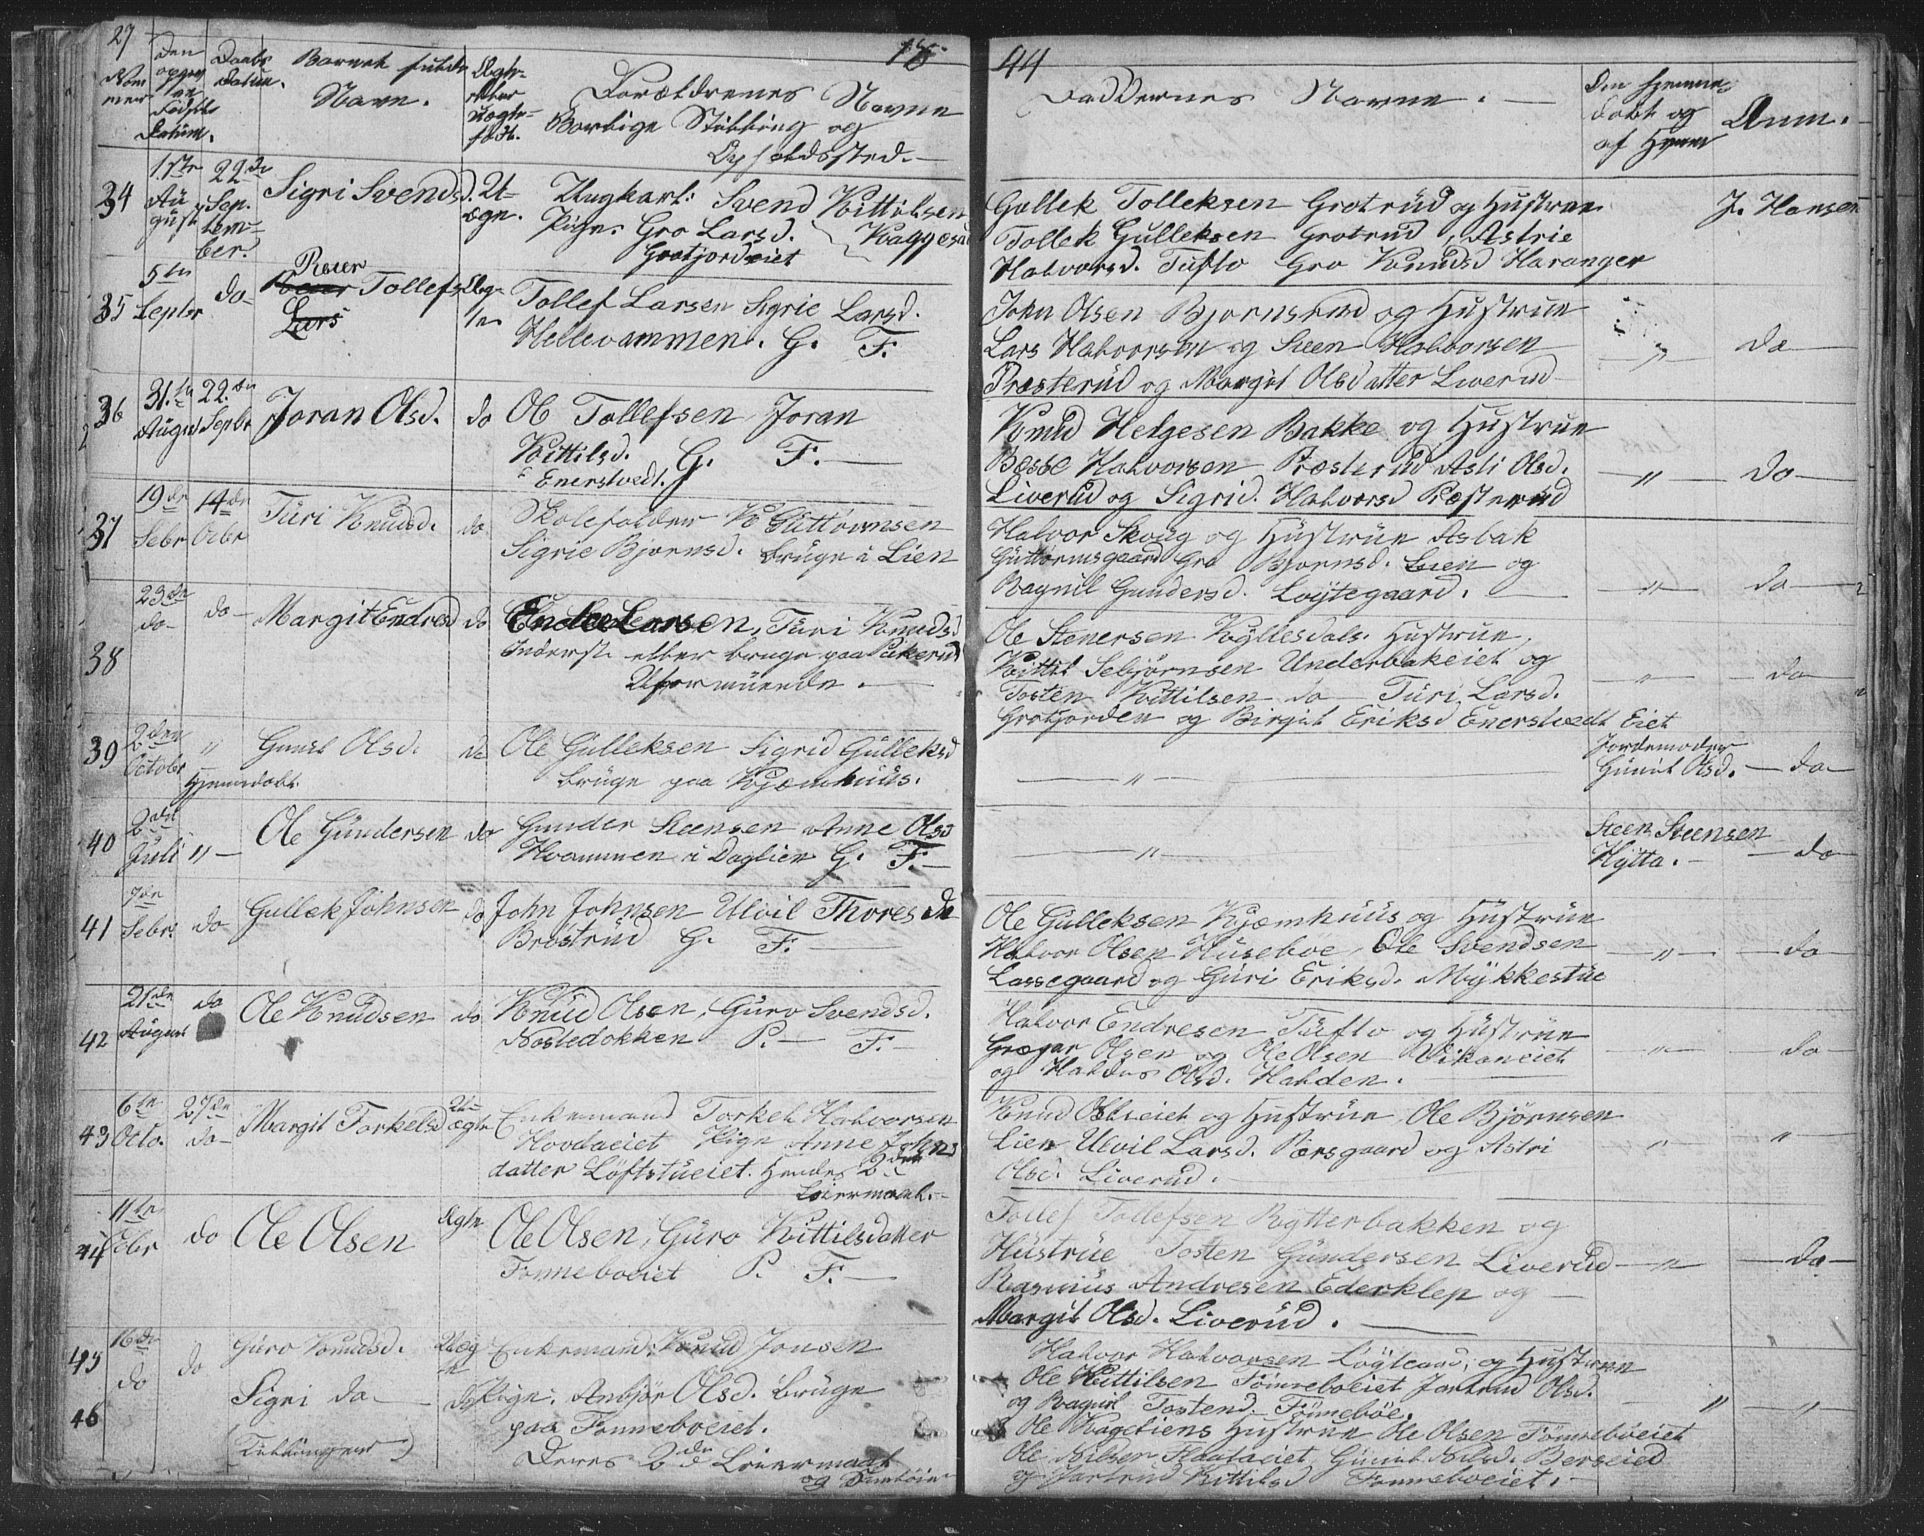 27
18
44
Nom
mer
Den
Fødsels
Datum.
Daabs
Datum.
Barnets fulde
Navn.
Ægte
eller
Uægte
født.
Forældrenes Navne
Borlige Stilling og
Opholdssted.
Faddernes Navne.
Den Hjemme
døbt og
af Hvem
Anm.
34
17de
Au
gust
22de
Sep
tem-
ber.
Sigri Svendsd.
U-
ægte.
Ungkarl: Svend Kittilsen
Pige. Gro Larsd.
Grotjordeiet
Gullek Tolleksen Grotrud og Hustrue
Tollek Gulleksen Grotrud, Astrie
Halvorsd. Tufto Gro Knudsd Haranger
J. Hansen
35
5te
Septbr
do
Lars
Tollefs
Tollef Larsen Sigrie Larsd.
Hellevammen. G. F.
John Olsen Bjornsrud og Hustrue
Lars Halvorsen og Steen Halvorsen
Præsterud og Margit Olsdatter Liverud
"
do
36
31.te
August
22.de
Septbr
Joran Olsd.
do
Ole Tollefsen Joran
Kittilsd. G. F.
Enerstvedt.
Knud Helgesen Bakke og Hustrue
Halvorsen Præsterud Asli Olsd.
Liverud og Sigrid Halvorsd Præsterud
"
do
37
19de
Sebr
14de
Ocbr
Turi Knudsd.
do
Skoleholder K Guttormsen
Sigrie Bjornsd. bruge i Lien
Halvor Skoug og Hustrue Aslak
Guttormsgaard Gro Bjornsd. Lien og
Ragnil Gundersd. Løytegaard.
"
do
38
23de
do
do
Margit Endresd
do
Endre Larsen, Turi Knudsd
Inderst eller bruge paa
Uformüende.
Ole Stenersen Kyllesdals Hustrue,
Kittil Sebjørnsen Underbakeiet og
Tosten Kittilsen do Turi Larsd.
Grotjorden og Birgit Eriksd Enerstvedt Eiet
"
do
39
2den
Octobr
"
Hjemdøbt.
Gunil Olsd.
do
Ole Gulleksen Sigrid Gulleksd
bruge paa Kjemhuus.
"
Jordemoder
Gunil Olsd.
do
40
Juli
"
Ole Gundersen
do
Gunder Steensen Anne Olsd
Hvammen i Daglien G. F.
"
Steen Steensen
Hytta.
do
41
7de
Sebr.
do
Gullek Johnsen
do
John Johnsen Ulvil Thoresda
Brøstrud G. F.
Ole Gulleksen Kjæmhuus og Hustrue
Halvor Olsen Huseboe, Ole Svendsen
Lassegaard og Guri Eriksd. Mykkestue
"
do
42
21de
August
do
Ole Knudsen
do
Knud Olsen, Guro Svendsd.
P. F.
Halvor Endresen Tufto og Hustrue
Olsen og Ole Olsen Vikaneiet
og Olsd. Halden.
"
do
43
6te
Octo.
27de
do
Margit Torkelsd
U-
ægte
Enkemand Torkel Halvorsen
Hovdaeiet Pige Anne Johns
datter Løftstueiet. Hendes 2den
Leiermaal.
Knud og Hustrue, Ole Bjørnsen
Lien Ulvil Larsd. Pærsgaard og Astri
Olsd. Liverud.
"
"
44
11te
do
Ole Olsen
Ægte
Ole Olsen, Guro Kittilsdatter
Fonneboeiet P. F.
Tollef Tollefsen Rytterbakken og
Hustrue Tosten Gundersen Liverud
Rasmus Andresen Ederklep og
Margit Olsd. Liverud.
"
do
45
16de
do
do
Guro Knudsd.
Uæg
te
Enkemand: Knud Jonsen
46
Sigri do
do
Pige: Anbjør Olsd. bruge
paa Fonneboeiet.
(Tvillinger)
Deres 2de Leiermaal
Halvor Halvorsen Løyteard, og Hustrue
Ole Kittilsen Fonneboeiet Jartrud Olsd.
og Ragnil Tostend. Fonneboe.
Ole Hustrue Ole Olsen Fonneboeiet
Ole Nilsen Gunil Nilsd. Berseied
og Jartrud Kittilsd Fonneboeiet.
"
"